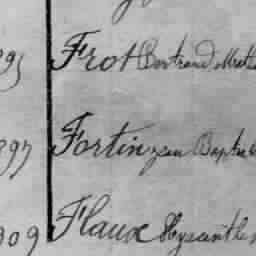 Frot Bertrand
Fortin jean Baptis
909 Flaux Hyacinthe